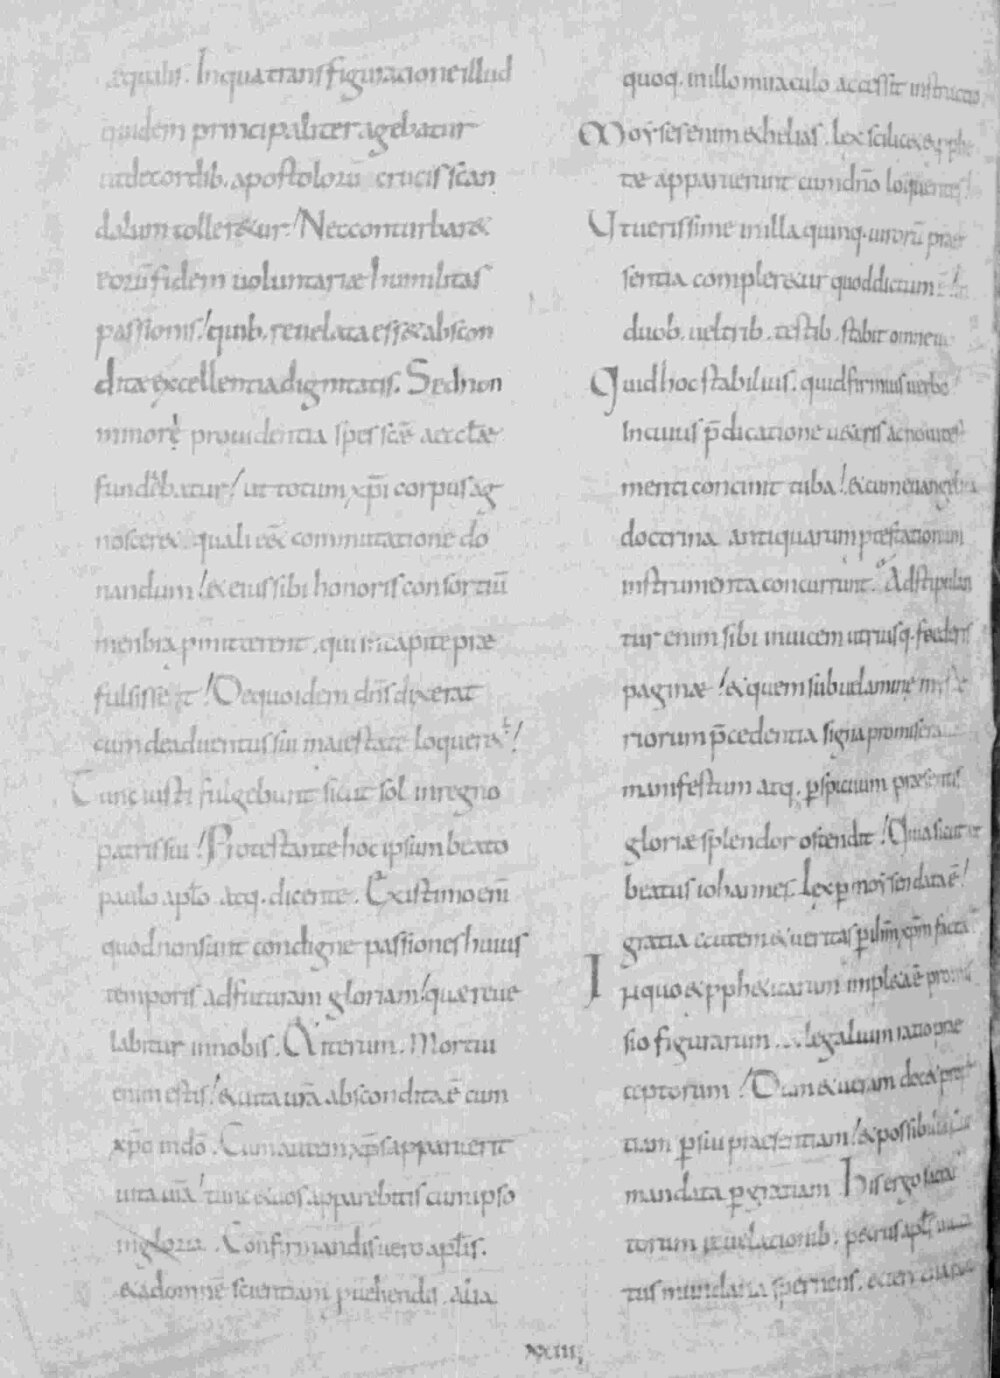 æqualis. In qua transfiguracione illud
quidem principaliter agebatur
ut de cordib. apostolorū crucis scan
dalum tolleretur! Nec conturbaret
eorū fidem voluntariæ humilitas
passionis! quib. revelata esset abscon
ditæ excellentia dignitatis. Sed non
minorę providentia spes scæ aecclæ
fundebatur! ut totum xp̄i corpus ag
nosceret quali eēt commutatione do
nandum! et eius sibi honoris consortiū
menbra p̄mitterent, qui in capite præ
fulsisset! De quo idem dn̄s dixerat
cum de adventus sui maiestate loqueret̄!
Tunc iusti fulgebunt sicut sol in regno
patris sui! Protestante hoc ipsum beato
paulo aplō atq. dicente. Existimo eni̅
quod non sunt condigne passiones huius
temporis ad futuram gloriam! quæ reve
labitur in nobis. Et iterum. Mortui
enim estis! et vita vr̄a abscondita ē cum
xp̄o in dō. Cum autem xp̄s apparuerit
vita vr̄a! tunc et vos apparebitis cum ipso
in gloria. Confirmandis vero aplīs.
et ad omnē scientiam p̄vehendis. alia
quoq. in illo miraculo accessit instructio
Moyses enim et helias. lex scilicet et pphe
tæ apparuerunt cum dn̄o loquentes!
Ut verissime in illa quinq. virorū præ
sentia compleretur quod dictum ē! In
duob. vel trib. testib. stabit omne
Quid hoc stabilius. quid firmius verbo!
In cuius p̄dicatione veteris ac novi testa
menti concinit tuba! et cum evangelica
doctrina antiquarum protestationum
instrumenta concurrunt. Adstipulan
tur enim sibi invicem utriusq. foederis
paginæ! et quem sub velamine miste
riorum p̄cedentia signa promiserant
manifestum atq. p̄spicuum præsentis
gloriæ splendor ostendit! Quia sicut
beatus iohannes. Lex p̄ moysen data ē!
gratia autem et veritas p̄ ihm̄ xp̄m facta
In quo et ppheticarum impleta ē promis
sio figurarum et legalium ratio præ
ceptorum! Dum et veram docet proph
tiam p̄ sui praesentiam! et possibilia
mandata p̄ gratiam His ergo sacra
torum revelationib. petrus aplūs
tus mundana spernens. et
xxiii;